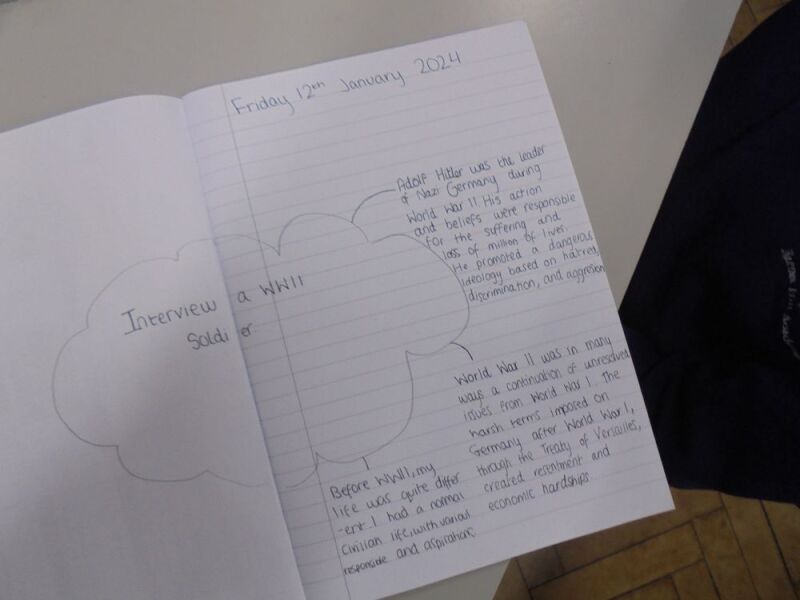 Friday 12th January 2024
Interview a WWII
Soldier
Adolf Hitler was the leader
of Nazi Germany during
World War II. His action
and beliefs were responsible
for the suffering and
loss of million of liver.
He promoted a dangerous
ideology based on hatred,
discrimination, and aggresion
World War II was in many
ways a continuation of unresolved
issues from World War I. The
harsh terms imposed on
Germany after World War I,
through the Treaty of Versailles,
created resentment and
economic hardships.
Before WWII, my
life was quite differ
-ent. I had a normal
Civilian life, with various
responsible and aspiration.